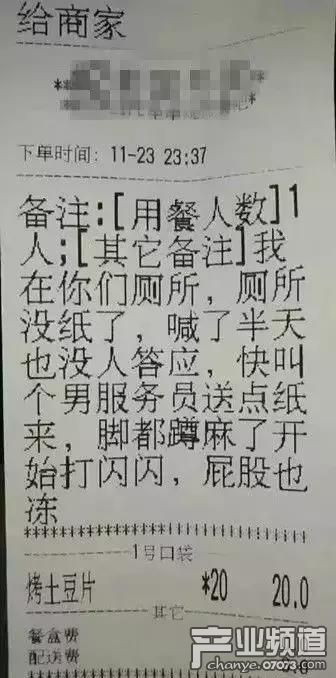 给商家
下单时间: 11-23 23:37
备注:[用餐人数]1
人;[其它备注]我
在你们厕所，厕所
没纸了，喊了半天
也没人答应，快叫
个男服务员送点纸
来，脚都蹲麻了开
始打闪闪，屁股也
冻
1号口袋
烤土豆片 *20 20.0
其它
餐盒费
配送费
产业频道
chanye.07073.com